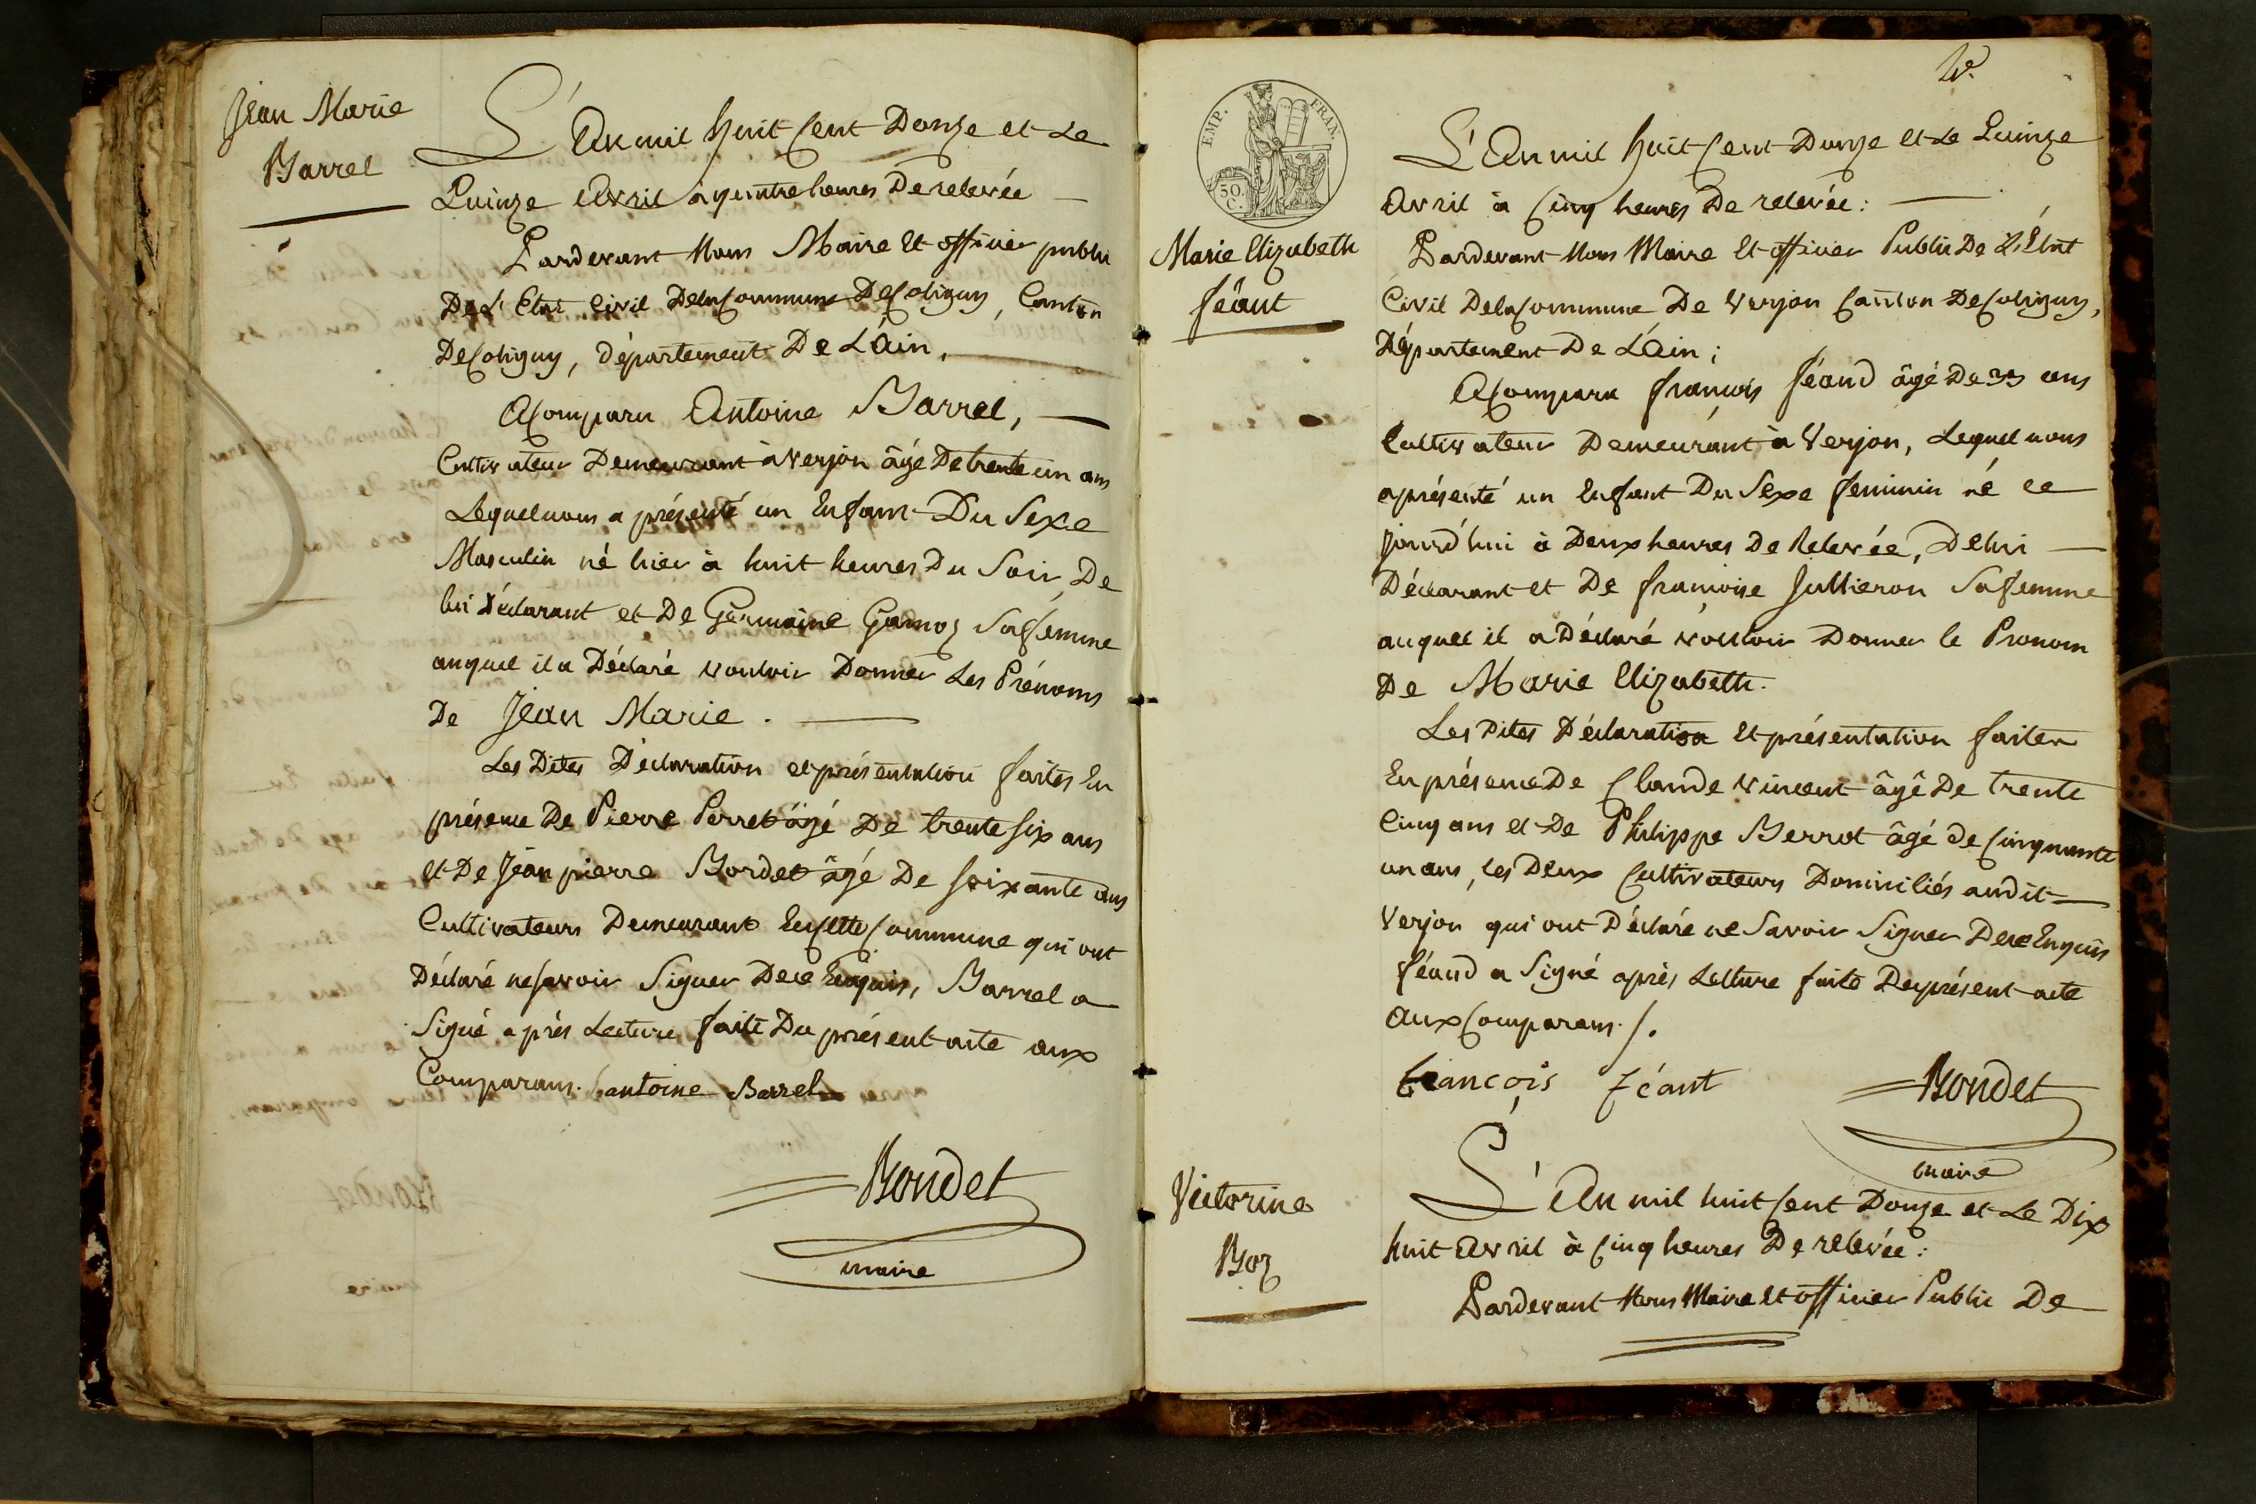 Jean Marie
Barrel
L'An mil huit Cent Douze et Le
Quinze Avril à quatre heures De relevée
Pardevant Nous Maire Et officier public
De L'Etat Civil Dela Commune De Coligny, Canton
De Coligny, département De L'Ain,
A Comparu Antoine Barrel,
Cultivateur Demeurant à Verjon âgé De trente un ans
Lequel nous a présenté un Enfant Du Sexe
Masculin né hier à huit heures Du Soir, De
lui Déclarant et De Germaine Gamoz Sa femme
auquel il a Déclaré vouloir Donner Les Prénoms
De Jean Marie.
Les Dites Déclaration et présentation faites En
présence De Pierre Perret âgé De trente six ans
et De Jean pierre Bordet âgé De soixante ans
Cultivateurs Demeurant En Cette Commune qui ont
Déclaré ne savoir Signer De ce Enquis, Barrel a
Signé après Lecture faite Du présent acte aux
Comparans. antoine Barrel
Bondet
maire
EMP. FRAN.
50.
C.
Marie Elizabeth
féant
L'An mil huit Cent Douze et Le Quinze
Avril à Cinq heures De relevée:
Pardevant Nous Maire Et officier Public De L'Etat
Civil Dela Commune De Verjon Canton De Coligny,
Département De L'Ain;
A Comparu françois féand âgé De 33 ans
Cultivateur Demeurant à Verjon, Lequel nous
a présenté un Enfant Du Sexe feminin né ce
Jourd'hui à Deux heures De Relevée, De lui
Déclarant et De françoise Jullieron Sa femme
auquel il a Déclaré vouloir Donner le Pronom
De Marie Elizabeth.
Les Dites Déclaration Et présentation faites
En présence De Claude Vincent âgé De trente
Cinq ans et De Philippe Berrot âgé de Cinquante
un ans, les Deux Cultivateurs Domiciliés audit
Verjon qui ont Déclaré ne Savoir Signer De ce Enquis
féand a Signé après Lecture faite Du présent acte
Aux Comparans ./.
francois féant
Bondet
maire
Victorine
Boz
L'An mil huit Cent Douze et Le Dix
huit Avril à Cinq heures De relevée:
Pardevant Nous Maire Et officier Public De